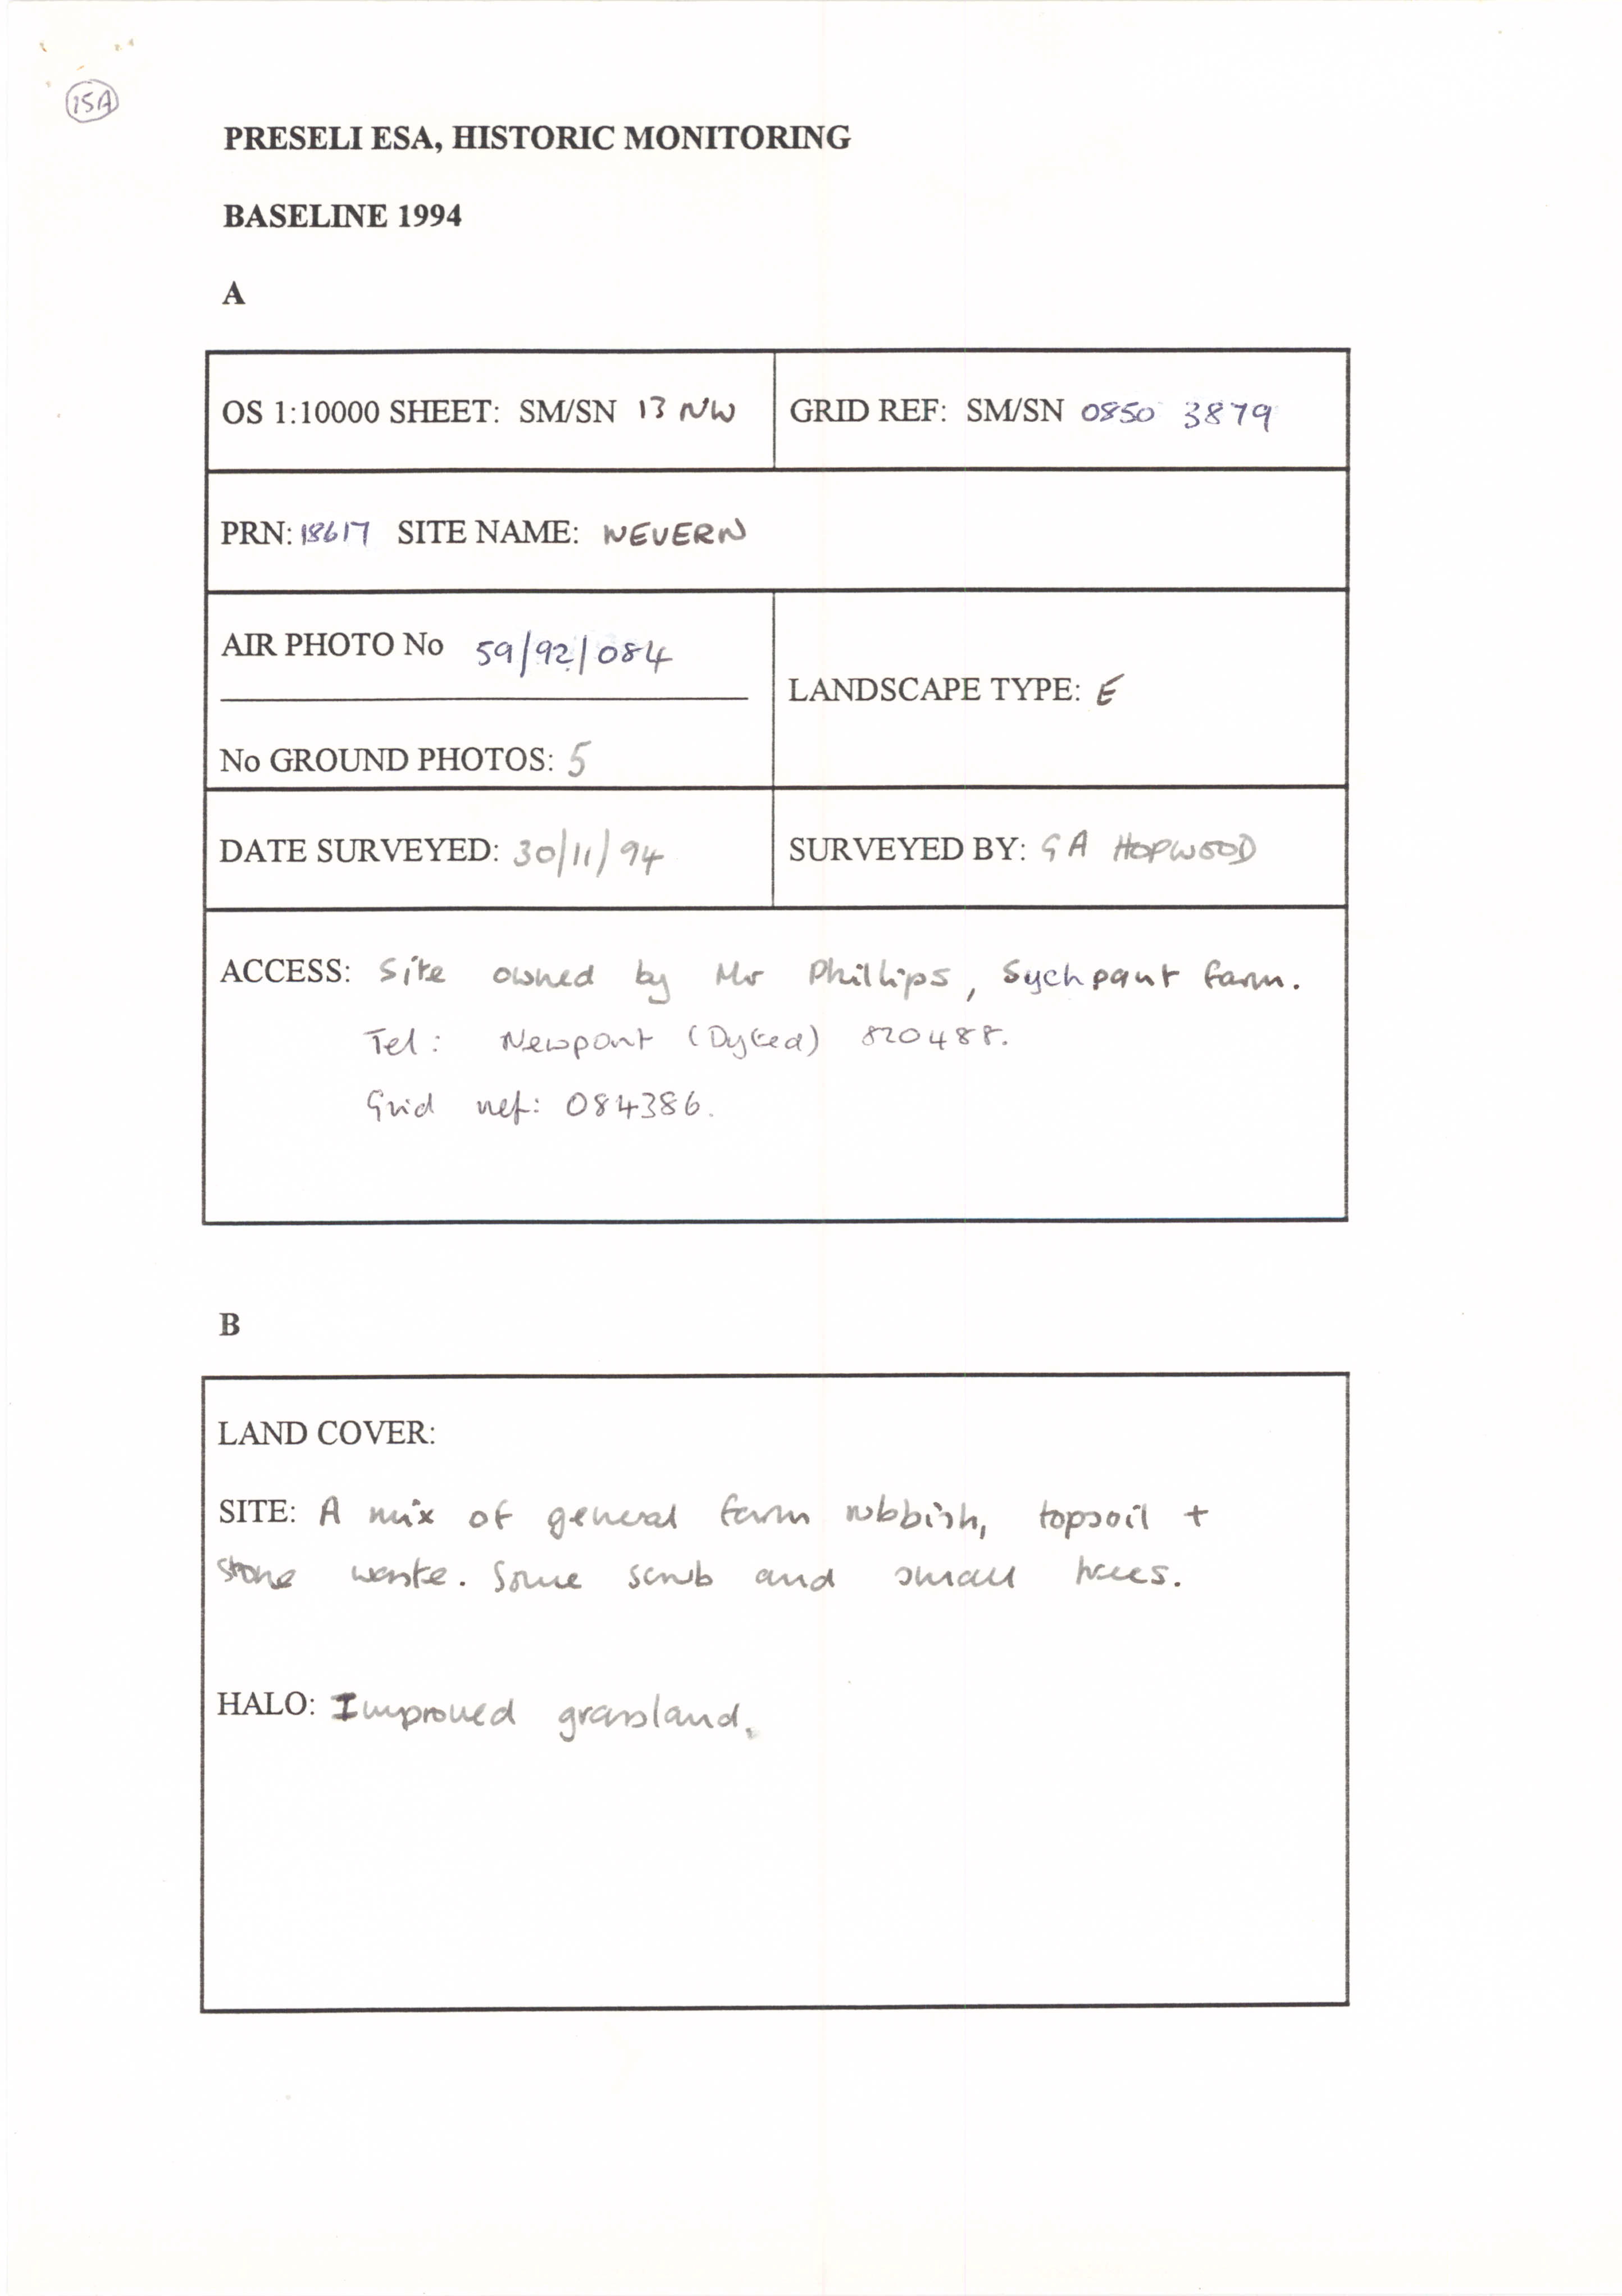 15A
PRESELI ESA, HISTORIC MONITORING
BASELINE 1994
A
OS 1:10000 SHEET: SM/SN 13 NW
GRID REF: SM/SN 0850 3879
PRN: 18617 SITE NAME: NEVERN
AIR PHOTO No 59/92/084
No GROUND PHOTOS: 5
LANDSCAPE TYPE: E
DATE SURVEYED: 30/11/94
SURVEYED BY: GA HOPWOOD
ACCESS: Site owned by Mr Phillips, Sychpant farm.
Tel: Newport (Dyfed) 820488.
Grid ref: 084386.
B
LAND COVER:
SITE: A mix of general farm rubbish, topsoil +
stone waste. Some scrub and small trees.
HALO: Improved grassland.